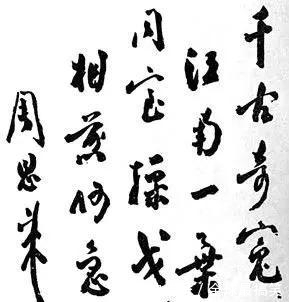 千古奇寃
江南一葉
同室操戈
相煎何急
周恩來